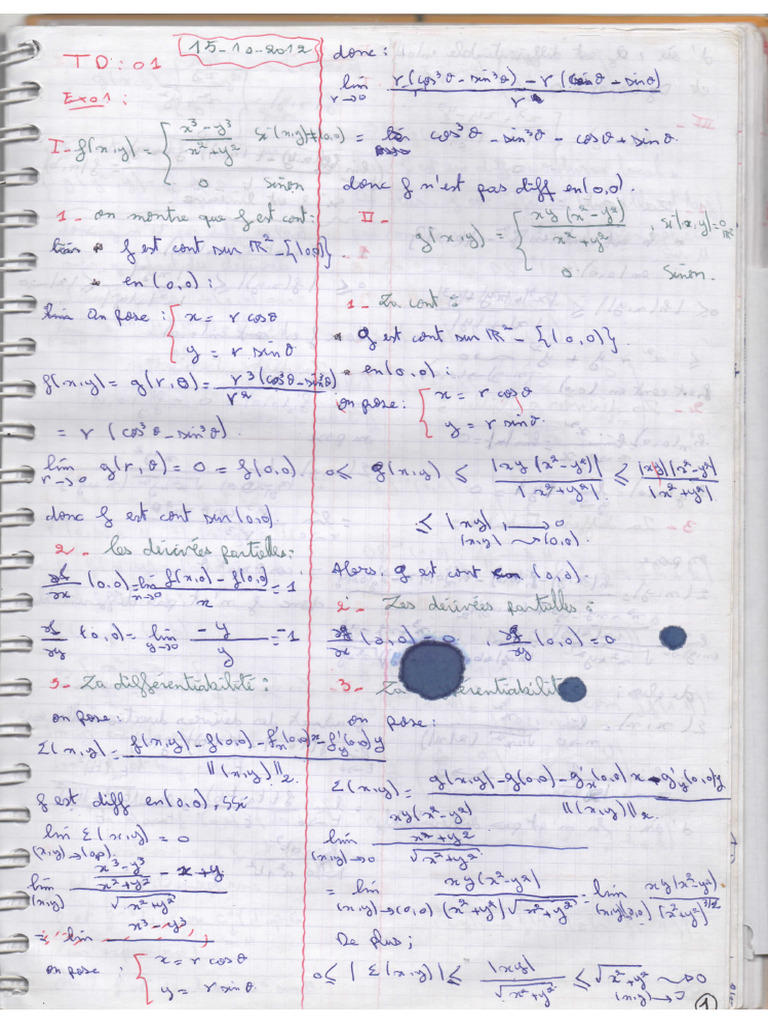 15-10-2012
TD: 01
Exo1:
I- f(x,y) = { (x³-y³)/(x²+y²) si (x,y)≠(0,0)
0 sinon
1- on montre que f est cont:
* f est cont sur ℝ²-{(0,0)}
* en (0,0):
on pose: { x = r cosθ
y = r sinθ
f(x,y) = g(r,θ) = r3(cos³θ-sin³θ)/r²
= r (cos³θ-sin³θ).
lim r→0 g(r,θ) = 0 = f(0,0).
donc f est cont sur (0,0).
2- les dérivées partielles:
∂f/∂x (0,0) = lim x→0 (f(x,0)-f(0,0))/x = 1
∂f/∂y (0,0) = lim y→0 -y/y = -1
3- La différentiabilité:
on pose:
Ɛ(x,y) = (f(x,y)-f(0,0)-f'x(0,0)x-f'y(0,0)y)/||(x,y)||₂
f est diff en (0,0), ssi
lim Ɛ(x,y) = 0
(x,y)→(0,0)
lim (x,y) ((x³-y³)/(x²+y²) - x+y)/√(x²+y²)
= lim x³-y³
on pose: { x = r cosθ
y = r sinθ
donc:
lim r→0 (r(cos³θ-sin³θ)-r(cosθ-sinθ))/r
= cos³θ-sin³θ-cosθ+sinθ.
donc f n'est pas diff en (0,0).
II-
g(x,y) = { xy(x²-y²)/(x²+y²), si (x,y)≠0 ℝ²
0 sinon.
1- La cont:
* g est cont sur ℝ²-{(0,0)}.
* en (0,0):
on pose: { x = r cosθ
y = r sinθ.
0≤ g(x,y) ≤ |xy(x²-y²)|/|x²+y²| ≤ |xy||x²-y²|/|x²+y²|
≤ |xy| ⟶ 0
(x,y)→(0,0).
Alors: g est cont (0,0).
2- Les dérivées partielles:
∂g/∂x (0,0) = 0, ∂g/∂y (0,0) = 0
3- La différentiabilité
on pose:
Ɛ(x,y) = (g(x,y)-g(0,0)-g'x(0,0)x-g'y(0,0)y)/||(x,y)||₂
lim (x,y)→0 (xy(x²-y²)/(x²+y²))/√(x²+y²)
= lim (x,y)→(0,0) xy(x²-y²)/((x²+y²)√(x²+y²)) = lim (x,y)→(0,0) xy(x²-y²)/(x²+y²)^3/2
De plus;
0≤ |Ɛ(x,y)| ≤ |xy|/√(x²+y²) ≤ √(x²+y²) → 0
(x,y)→0
1